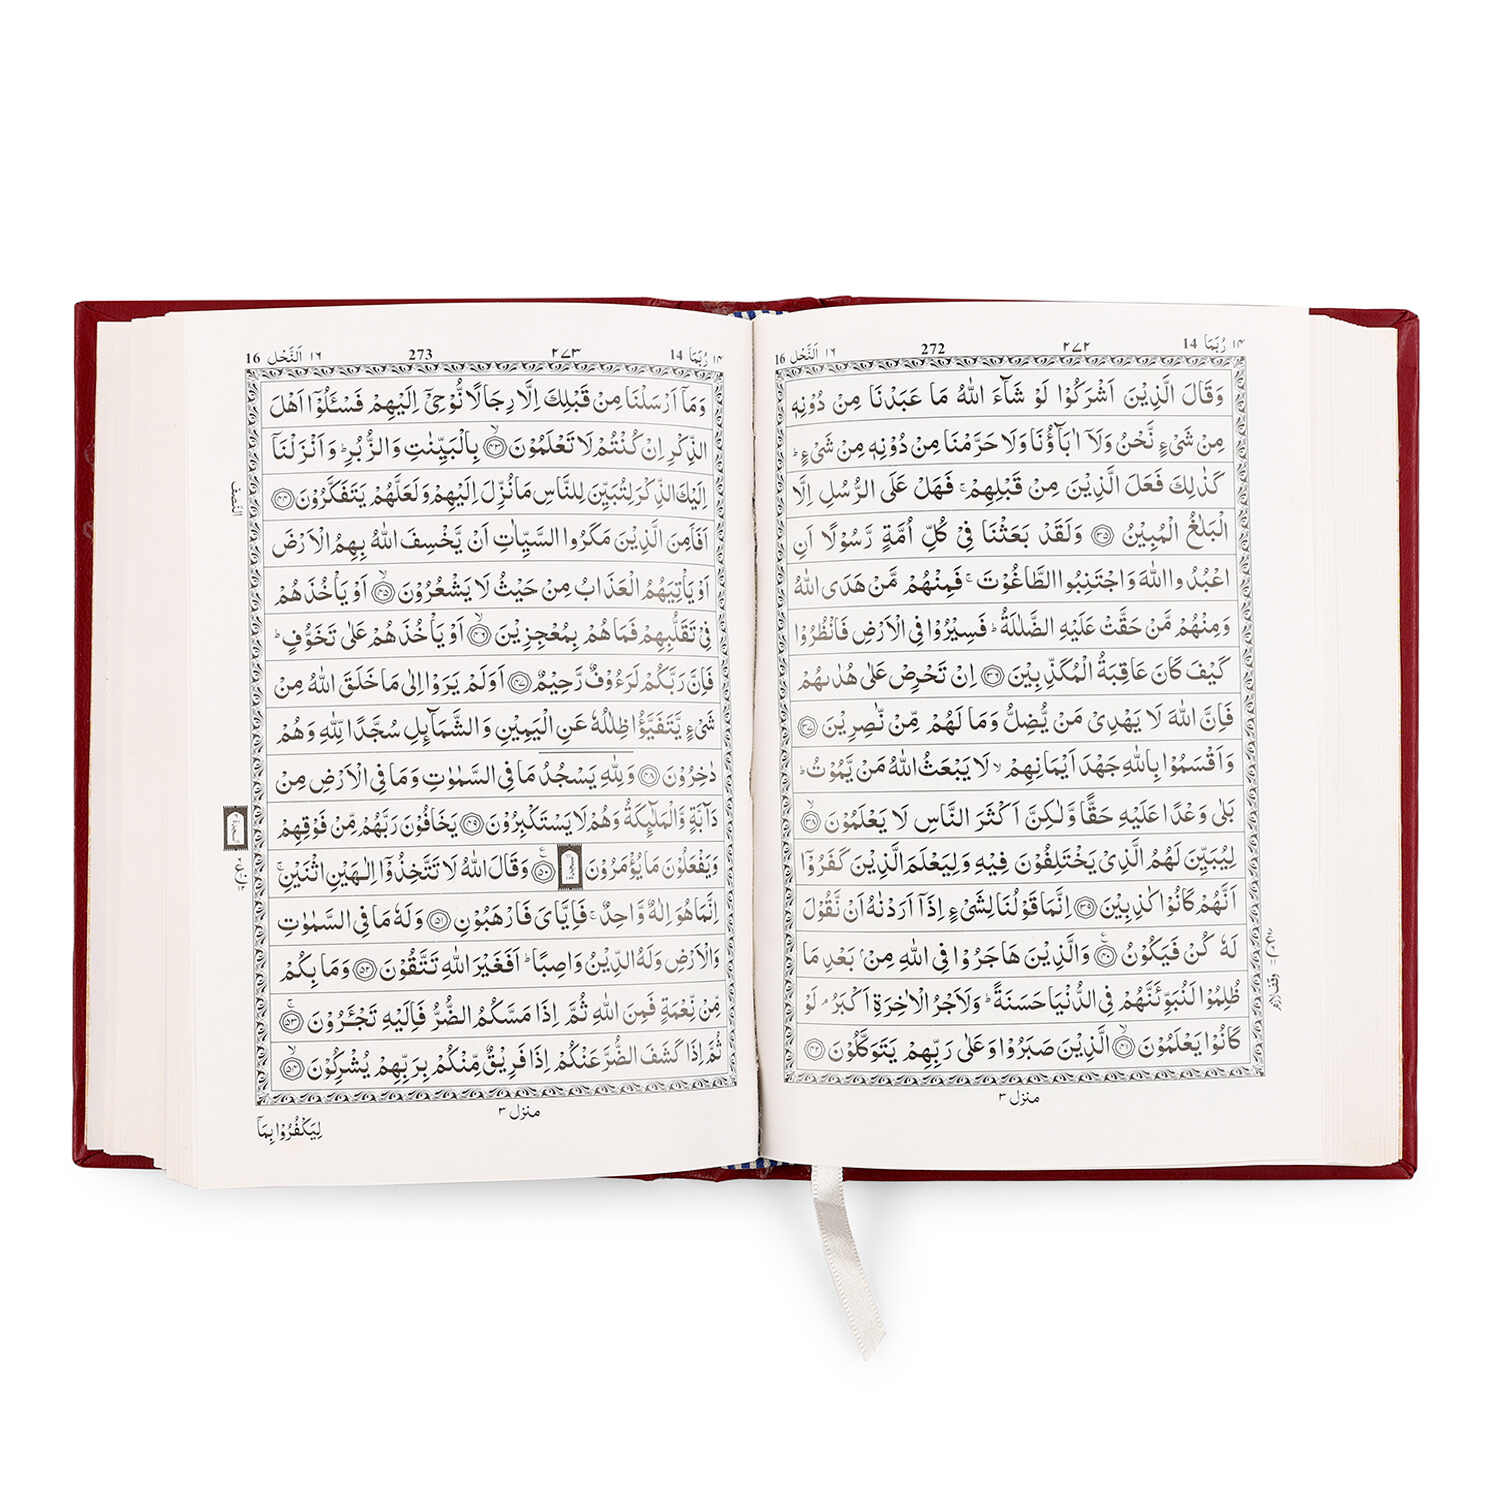 ١٤ رُبَمَا 14
٢٧٢
272
١٦ اَلنَّحْل 16
وَقَالَ الَّذِيْنَ اَشْرَكُوْا لَوْ شَآءَ اللّٰهُ مَا عَبَدْنَا مِنْ دُوْنِهٖ
مِنْ شَيْءٍ نَّحْنُ وَلَآ اٰبَآؤُنَا وَلَا حَرَّمْنَا مِنْ دُوْنِهٖ مِنْ شَيْءٍ ؕ
كَذٰلِكَ فَعَلَ الَّذِيْنَ مِنْ قَبْلِهِمْ ۚ فَهَلْ عَلَى الرُّسُلِ اِلَّا
الْبَلٰغُ الْمُبِيْنُ ﴿٣٥﴾ وَلَقَدْ بَعَثْنَا فِيْ كُلِّ اُمَّةٍ رَّسُوْلًا اَنِ
اعْبُدُوا اللّٰهَ وَاجْتَنِبُوا الطَّاغُوْتَ ۚ فَمِنْهُمْ مَّنْ هَدَى اللّٰهُ
وَمِنْهُمْ مَّنْ حَقَّتْ عَلَيْهِ الضَّلٰلَةُ ؕ فَسِيْرُوْا فِي الْاَرْضِ فَانْظُرُوْا
كَيْفَ كَانَ عَاقِبَةُ الْمُكَذِّبِيْنَ ﴿٣٦﴾ اِنْ تَحْرِصْ عَلٰى هُدٰىهُمْ
فَاِنَّ اللّٰهَ لَا يَهْدِيْ مَنْ يُّضِلُّ وَمَا لَهُمْ مِّنْ نّٰصِرِيْنَ ﴿٣٧﴾
وَاَقْسَمُوْا بِاللّٰهِ جَهْدَ اَيْمَانِهِمْ ۙ لَا يَبْعَثُ اللّٰهُ مَنْ يَّمُوْتُ ؕ
بَلٰى وَعْدًا عَلَيْهِ حَقًّا وَّلٰكِنَّ اَكْثَرَ النَّاسِ لَا يَعْلَمُوْنَ ﴿٣٨﴾ ۙ
لِيُبَيِّنَ لَهُمُ الَّذِيْ يَخْتَلِفُوْنَ فِيْهِ وَلِيَعْلَمَ الَّذِيْنَ كَفَرُوْٓا
اَنَّهُمْ كَانُوْا كٰذِبِيْنَ ﴿٣٩﴾ اِنَّمَا قَوْلُنَا لِشَيْءٍ اِذَآ اَرَدْنٰهُ اَنْ نَّقُوْلَ
لَهٗ كُنْ فَيَكُوْنُ ﴿٤٠﴾ وَالَّذِيْنَ هَاجَرُوْا فِي اللّٰهِ مِنْۢ بَعْدِ مَا
ظُلِمُوْا لَنُبَوِّئَنَّهُمْ فِي الدُّنْيَا حَسَنَةً ؕ وَلَاَجْرُ الْاٰخِرَةِ اَكْبَرُ ۘ لَوْ
كَانُوْا يَعْلَمُوْنَ ﴿٤١﴾ ۙ الَّذِيْنَ صَبَرُوْا وَعَلٰى رَبِّهِمْ يَتَوَكَّلُوْنَ ﴿٤٢﴾
منزل ٣
١٤ رُبَمَا 14
٢٧٣
273
١٦ اَلنَّحْل 16
وَمَآ اَرْسَلْنَا مِنْ قَبْلِكَ اِلَّا رِجَالًا نُّوْحِيْٓ اِلَيْهِمْ فَسْـَٔلُوْٓا اَهْلَ
الذِّكْرِ اِنْ كُنْتُمْ لَا تَعْلَمُوْنَ ﴿٤٣﴾ ۙ بِالْبَيِّنٰتِ وَالزُّبُرِ ؕ وَاَنْزَلْنَآ
اِلَيْكَ الذِّكْرَ لِتُبَيِّنَ لِلنَّاسِ مَا نُزِّلَ اِلَيْهِمْ وَلَعَلَّهُمْ يَتَفَكَّرُوْنَ ﴿٤٤﴾
النصف
اَفَاَمِنَ الَّذِيْنَ مَكَرُوا السَّيِّاٰتِ اَنْ يَّخْسِفَ اللّٰهُ بِهِمُ الْاَرْضَ
اَوْ يَاْتِيَهُمُ الْعَذَابُ مِنْ حَيْثُ لَا يَشْعُرُوْنَ ﴿٤٥﴾ ۙ اَوْ يَاْخُذَهُمْ
فِيْ تَقَلُّبِهِمْ فَمَا هُمْ بِمُعْجِزِيْنَ ﴿٤٦﴾ ۙ اَوْ يَاْخُذَهُمْ عَلٰى تَخَوُّفٍ ؕ
فَاِنَّ رَبَّكُمْ لَرَءُوْفٌ رَّحِيْمٌ ﴿٤٧﴾ اَوَلَمْ يَرَوْا اِلٰى مَا خَلَقَ اللّٰهُ مِنْ
شَيْءٍ يَّتَفَيَّؤُا ظِلٰلُهٗ عَنِ الْيَمِيْنِ وَالشَّمَآئِلِ سُجَّدًا لِّلّٰهِ وَهُمْ
دٰخِرُوْنَ ﴿٤٨﴾ وَلِلّٰهِ يَسْجُدُ مَا فِي السَّمٰوٰتِ وَمَا فِي الْاَرْضِ مِنْ
دَآبَّةٍ وَّالْمَلٰٓئِكَةُ وَهُمْ لَا يَسْتَكْبِرُوْنَ ﴿٤٩﴾ يَخَافُوْنَ رَبَّهُمْ مِّنْ فَوْقِهِمْ
وَيَفْعَلُوْنَ مَا يُؤْمَرُوْنَ ﴿٥٠﴾ وَقَالَ اللّٰهُ لَا تَتَّخِذُوْٓا اِلٰهَيْنِ اثْنَيْنِ ۚ
اِنَّمَا هُوَ اِلٰهٌ وَّاحِدٌ ۚ فَاِيَّايَ فَارْهَبُوْنِ ﴿٥١﴾ وَلَهٗ مَا فِي السَّمٰوٰتِ
وَالْاَرْضِ وَلَهُ الدِّيْنُ وَاصِبًا ؕ اَفَغَيْرَ اللّٰهِ تَتَّقُوْنَ ﴿٥٢﴾ وَمَا بِكُمْ
مِّنْ نِّعْمَةٍ فَمِنَ اللّٰهِ ثُمَّ اِذَا مَسَّكُمُ الضُّرُّ فَاِلَيْهِ تَجْـَٔرُوْنَ ﴿٥٣﴾ ۚ
ثُمَّ اِذَا كَشَفَ الضُّرَّ عَنْكُمْ اِذَا فَرِيْقٌ مِّنْكُمْ بِرَبِّهِمْ يُشْرِكُوْنَ ﴿٥٤﴾ ۙ
منزل ٣
لِيَكْفُرُوْا بِمَآ